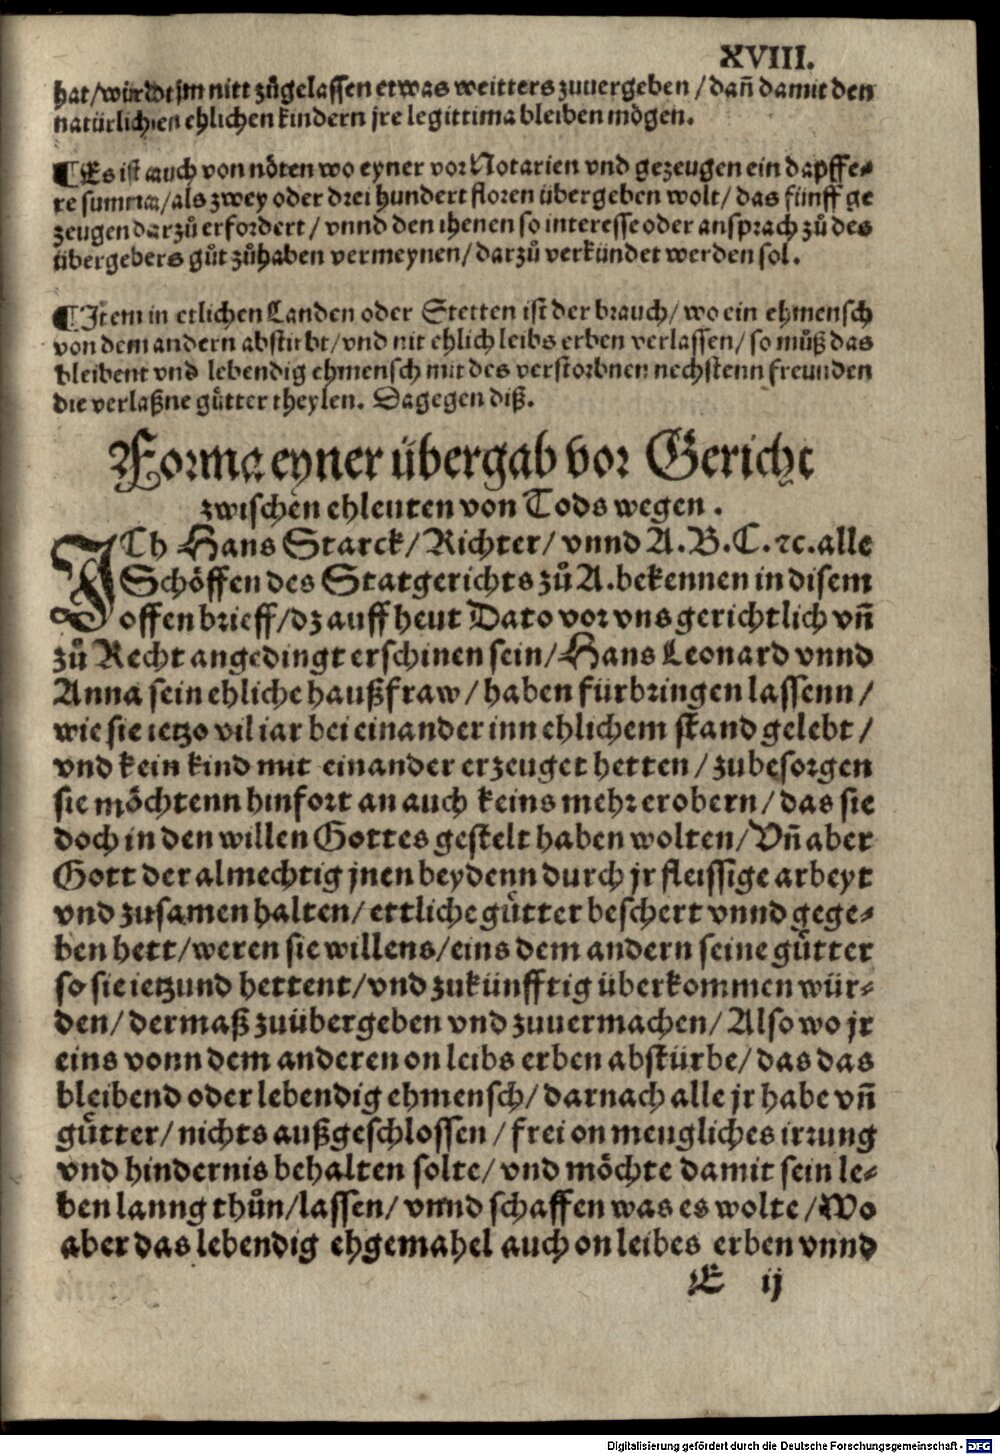 XVIII.
hat/würdt jm nitt zůgelassen etwas weitters zuuergeben/dañ damit den
natürlichen ehlichen kindern jre legittima bleiben mögen.
¶Es ist auch von nöten wo eyner vor Notarien vnd gezeugen ein dapffe⸗
re summa/als zwey oder drei hundert floren übergeben wolt/das fünff ge
zeugen darzů erfordert/vnnd den ihenen so interesse oder ansprach zů des
übergebers gůt zůhaben vermeynen/darzů verkündet werden sol.
¶Item in etlichen Landen oder Stetten ist der brauch/wo ein ehmensch
von dem andern abstirbt/vnd nit ehlich leibs erben verlassen/so můß das
bleibent vnd lebendig ehmensch mit des verstorbnen nechstenn freunden
die verlaßne gütter theylen. Dagegen diß.
Forma eyner übergab vor Gericht
zwischen ehleuten von Tods wegen.
ICh Hans Starck/Richter/vnnd A.B.C.ꝛc.alle
Schöffen des Statgerichts zů A.bekennen in disem
offen brieff/dz auff heut Dato vor vns gerichtlich vñ
zů Recht angedingt erschinen sein/Hans Leonard vnnd
Anna sein ehliche haußfraw/haben fürbringen lassenn/
wie sie ietzo vil iar bei einander inn ehlichem stand gelebt/
vnd kein kind mit einander erzeuget hetten/zubesorgen
sie möchtenn hinfort an auch keins mehr erobern/das sie
doch in den willen Gottes gestelt haben wolten/Vñ aber
Gott der almechtig jnen beydenn durch jr fleissige arbeyt
vnd zusamen halten/ettliche gütter beschert vnnd gege⸗
ben hett/weren sie willens/eins dem andern seine gütter
so sie ietzund hettent/vnd zukünfftig überkommen wür⸗
den/dermaß zuübergeben vnd zuuermachen/Also wo jr
eins vonn dem anderen on leibs erben abstürbe/das das
bleibend oder lebendig ehmensch/darnach alle jr habe vñ
gütter/nichts außgeschlossen/frei on meugliches irrung
vnd hindernis behalten solte/vnd möchte damit sein le⸗
ben lanng thůn/lassen/vnnd schaffen was es wolte/Wo
aber das lebendig ehgemahel auch on leibes erben vnnd
E ij
Digitalisierung gefördert durch die Deutsche Forschungsgemeinschaft - DFG